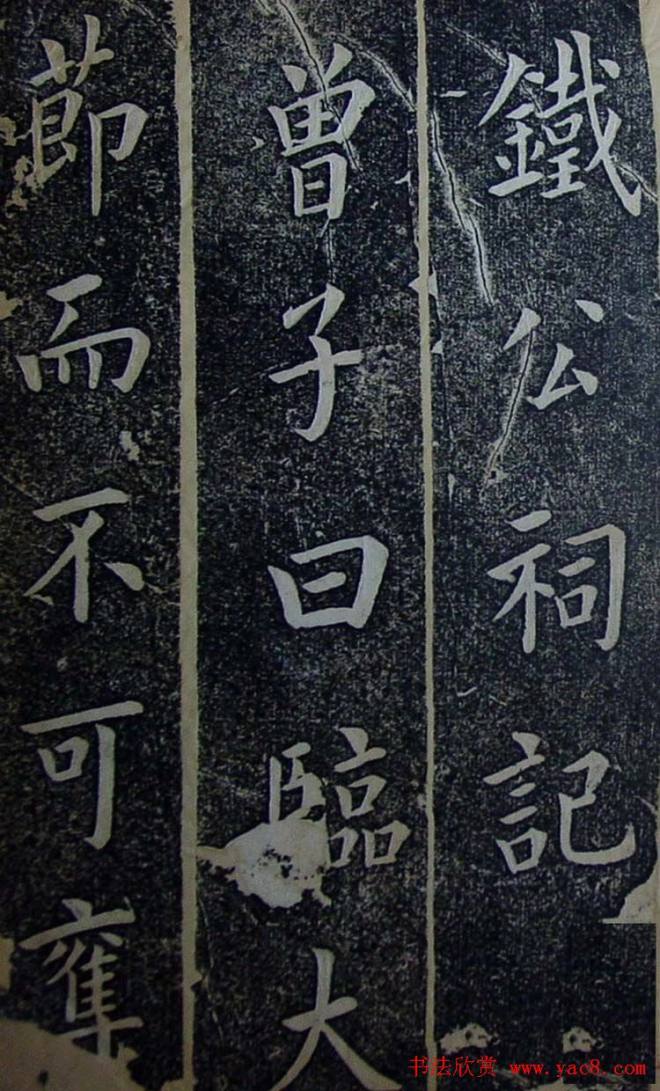 鐵公祠記
曾子曰臨大
節而不可奪
书法欣赏 www.yac8.com